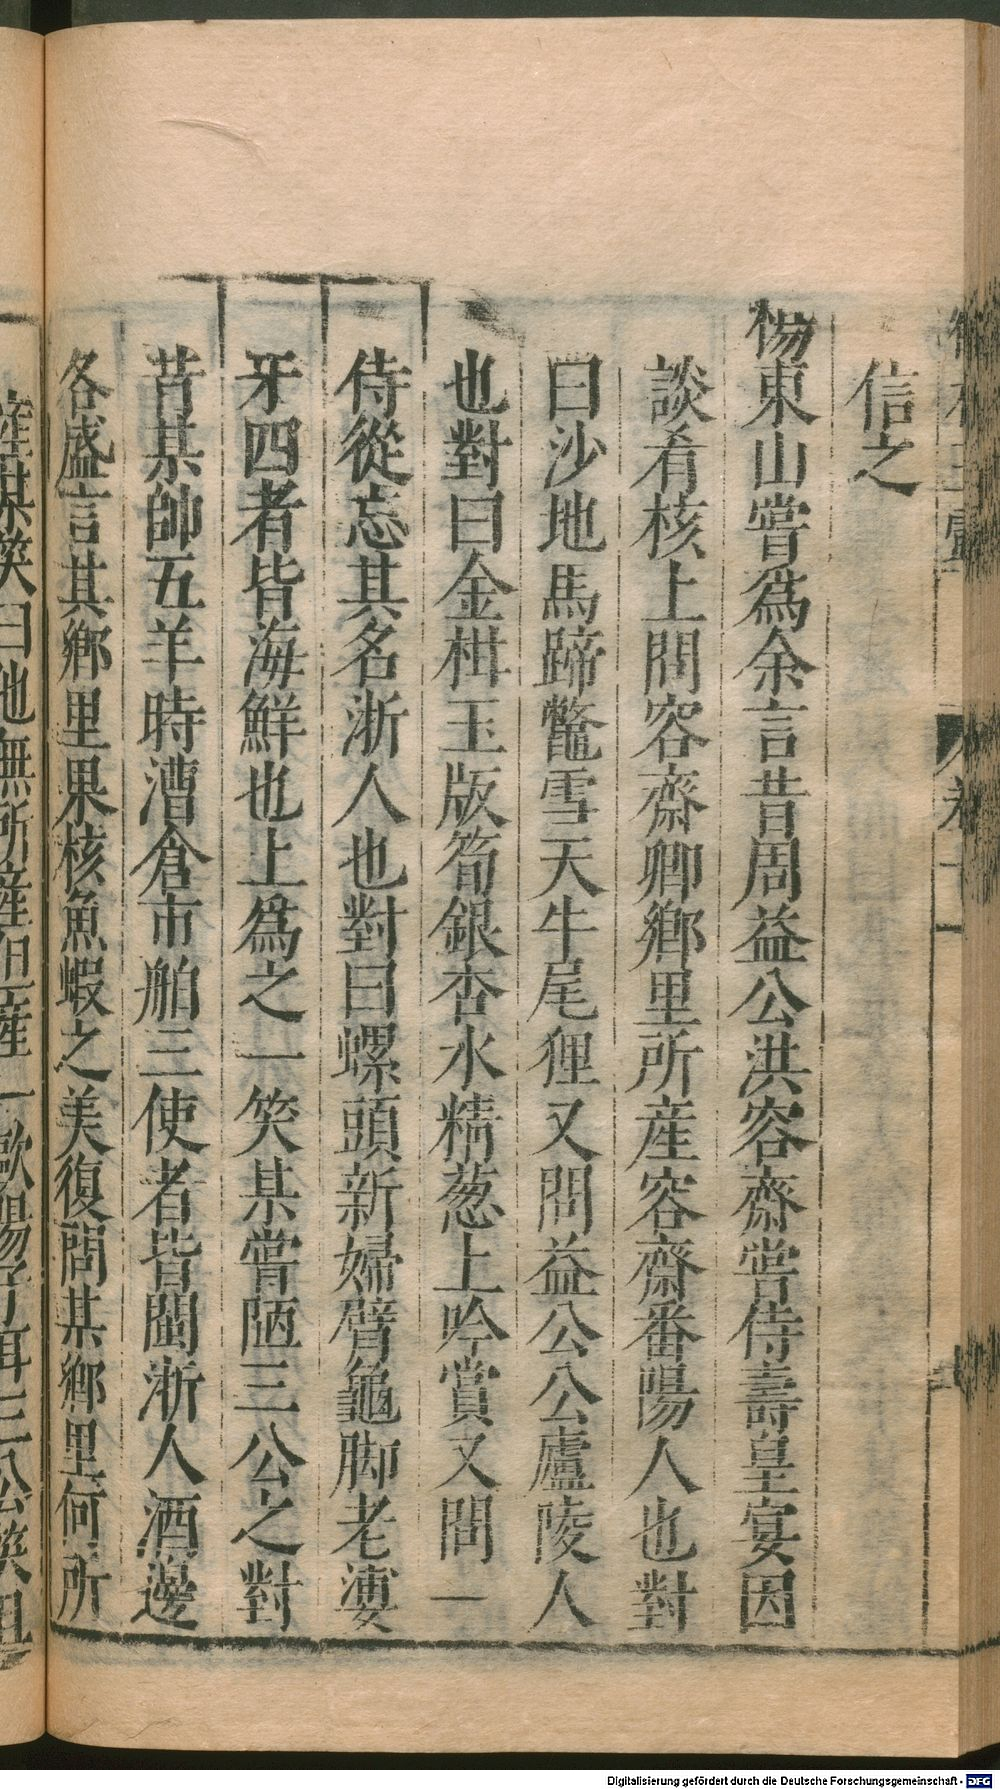 信之
楊東山嘗爲余言昔周益公洪容齋嘗侍壽皇宴因
談肴核上問容齋卿鄉里所産容齋番陽人也對
曰沙地馬蹄鼈雪天牛尾狸又問益公公廬陵人
也對曰金柑玉版筍銀杏水精葱上吟賞又問一
侍從忘其名浙人也對曰螺頭新婦臂龜脚老婆
牙四者皆海鮮也上爲之一笑某嘗陋三公之對
昔某帥五羊時漕倉市舶三使者皆閩浙人酒邊
各盛言其鄉里果核魚蝦之美復問某鄉里何所
産某笑曰他無所産但産一歐陽子耳三公笑且
Digitalisierung gefördert durch die Deutsche Forschungsgemeinschaft - DFG